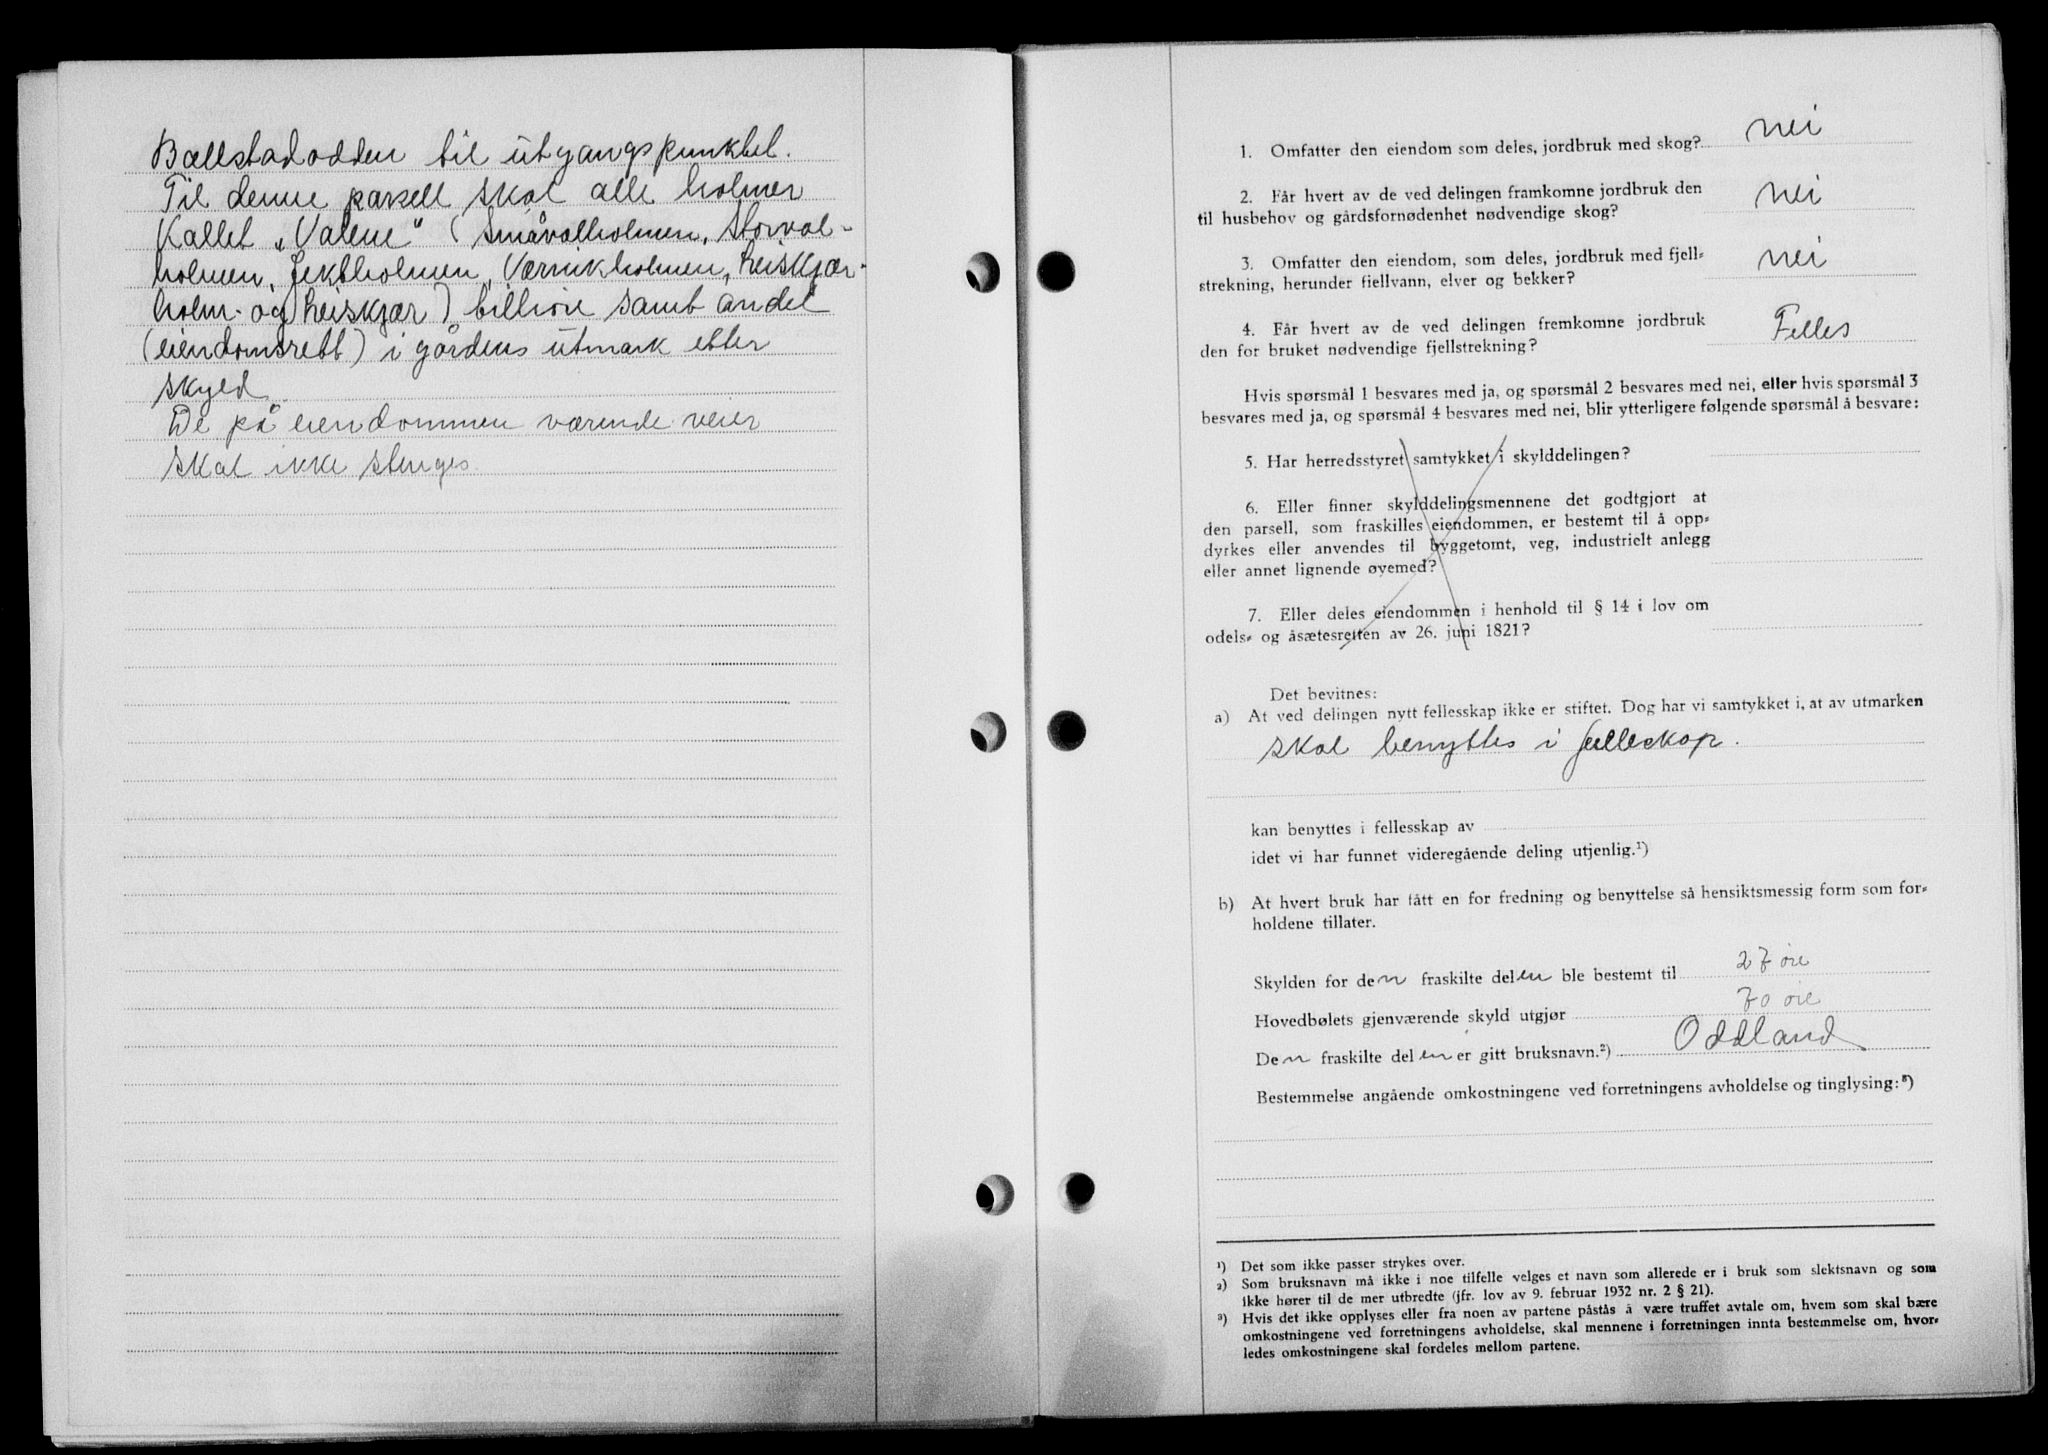 Ballstadodden til utgangspunktet.
Til denne parsell skal alle holmer
Kallet „Valene" (Småvalholmen, Storval-
holmen, Jektholmen, Værnikholmen, Leiskjær-
holm og Leiskjær) tillhøre samt andel
(eiendomsrett) i gårdens utmark etter
skyld.
De på eiendommen værende veier
skal ikke stenges.
1. Omfatter den eiendom som deles, jordbruk med skog? nei
2. Får hvert av de ved delingen framkomne jordbruk den
til husbehov og gårdsfornødenhet nødvendige skog? nei
3. Omfatter den eiendom, som deles, jordbruk med fjell-
strekning, herunder fiellvann, elver og bekker? nei
4. Får hvert av de ved delingen fremkomne jordbruk
den for bruket nødvendige fjellstrekning? Felles
Hvis spørsmål 1 besvares med ja, og spørsmål 2 besvares med nei, eller hvis spørsmål 3
besvares med ja, og spørsmål 4 besvares med nei, blir ytterligere følgende spørsmål å besvare:
5. Har herredsstyret samtykket i skylddelingen?
6. Eller finner skylddelingsmennene det godtgjort at
den parsell, som fraskilles eiendommen, er bestemt til å opp-
dyrkes eller anvendes til byggetomt, veg, industrielt anlegg
eller annet lignende øyemed?
7. Eller deles eiendommen i henhold til § 14 i lov om
odels- og åsætesretten av 26. juni 1821?
Det bevitnes:
a) At ved delingen nytt fellesskap ikke er stiftet. Dog har vi samtykket i, at av utmarken
skal benyttes i felleskap.
kan benyttes i fellesskap av
idet vi har funnet videregående deling utjenlig.¹)
b) At hvert bruk har fått en for fredning og benyttelse så hensiktsmessig form som for-
holdene tillater.
Skylden for den fraskilte delen ble bestemt til 27 øre
Hovedbølets gjenværende skyld utgjør 70 øre
Den fraskilte delen er gitt bruksnavn.²) Oddland
Bestemmelse angående omkostningene ved forretningens avholdelse og tinglysing:³)
¹) Det som ikke passer strykes over.
²) Som bruksnavn må ikke i noe tilfelle velges et navn som allerede er i bruk som slektsnavn og som
ikke hører til de mer utbredte (jfr. lov av 9. februar 1932 nr. 2 § 21).
³) Hvis det ikke opplyses eller fra noen av partene påstås å være truffet avtale om, hvem som skal bære
omkostningene ved forretningens avholdelse, skal mennene i forretningen innta bestemmelse om, hvor-
ledes omkostningene skal fordeles mellom partene.